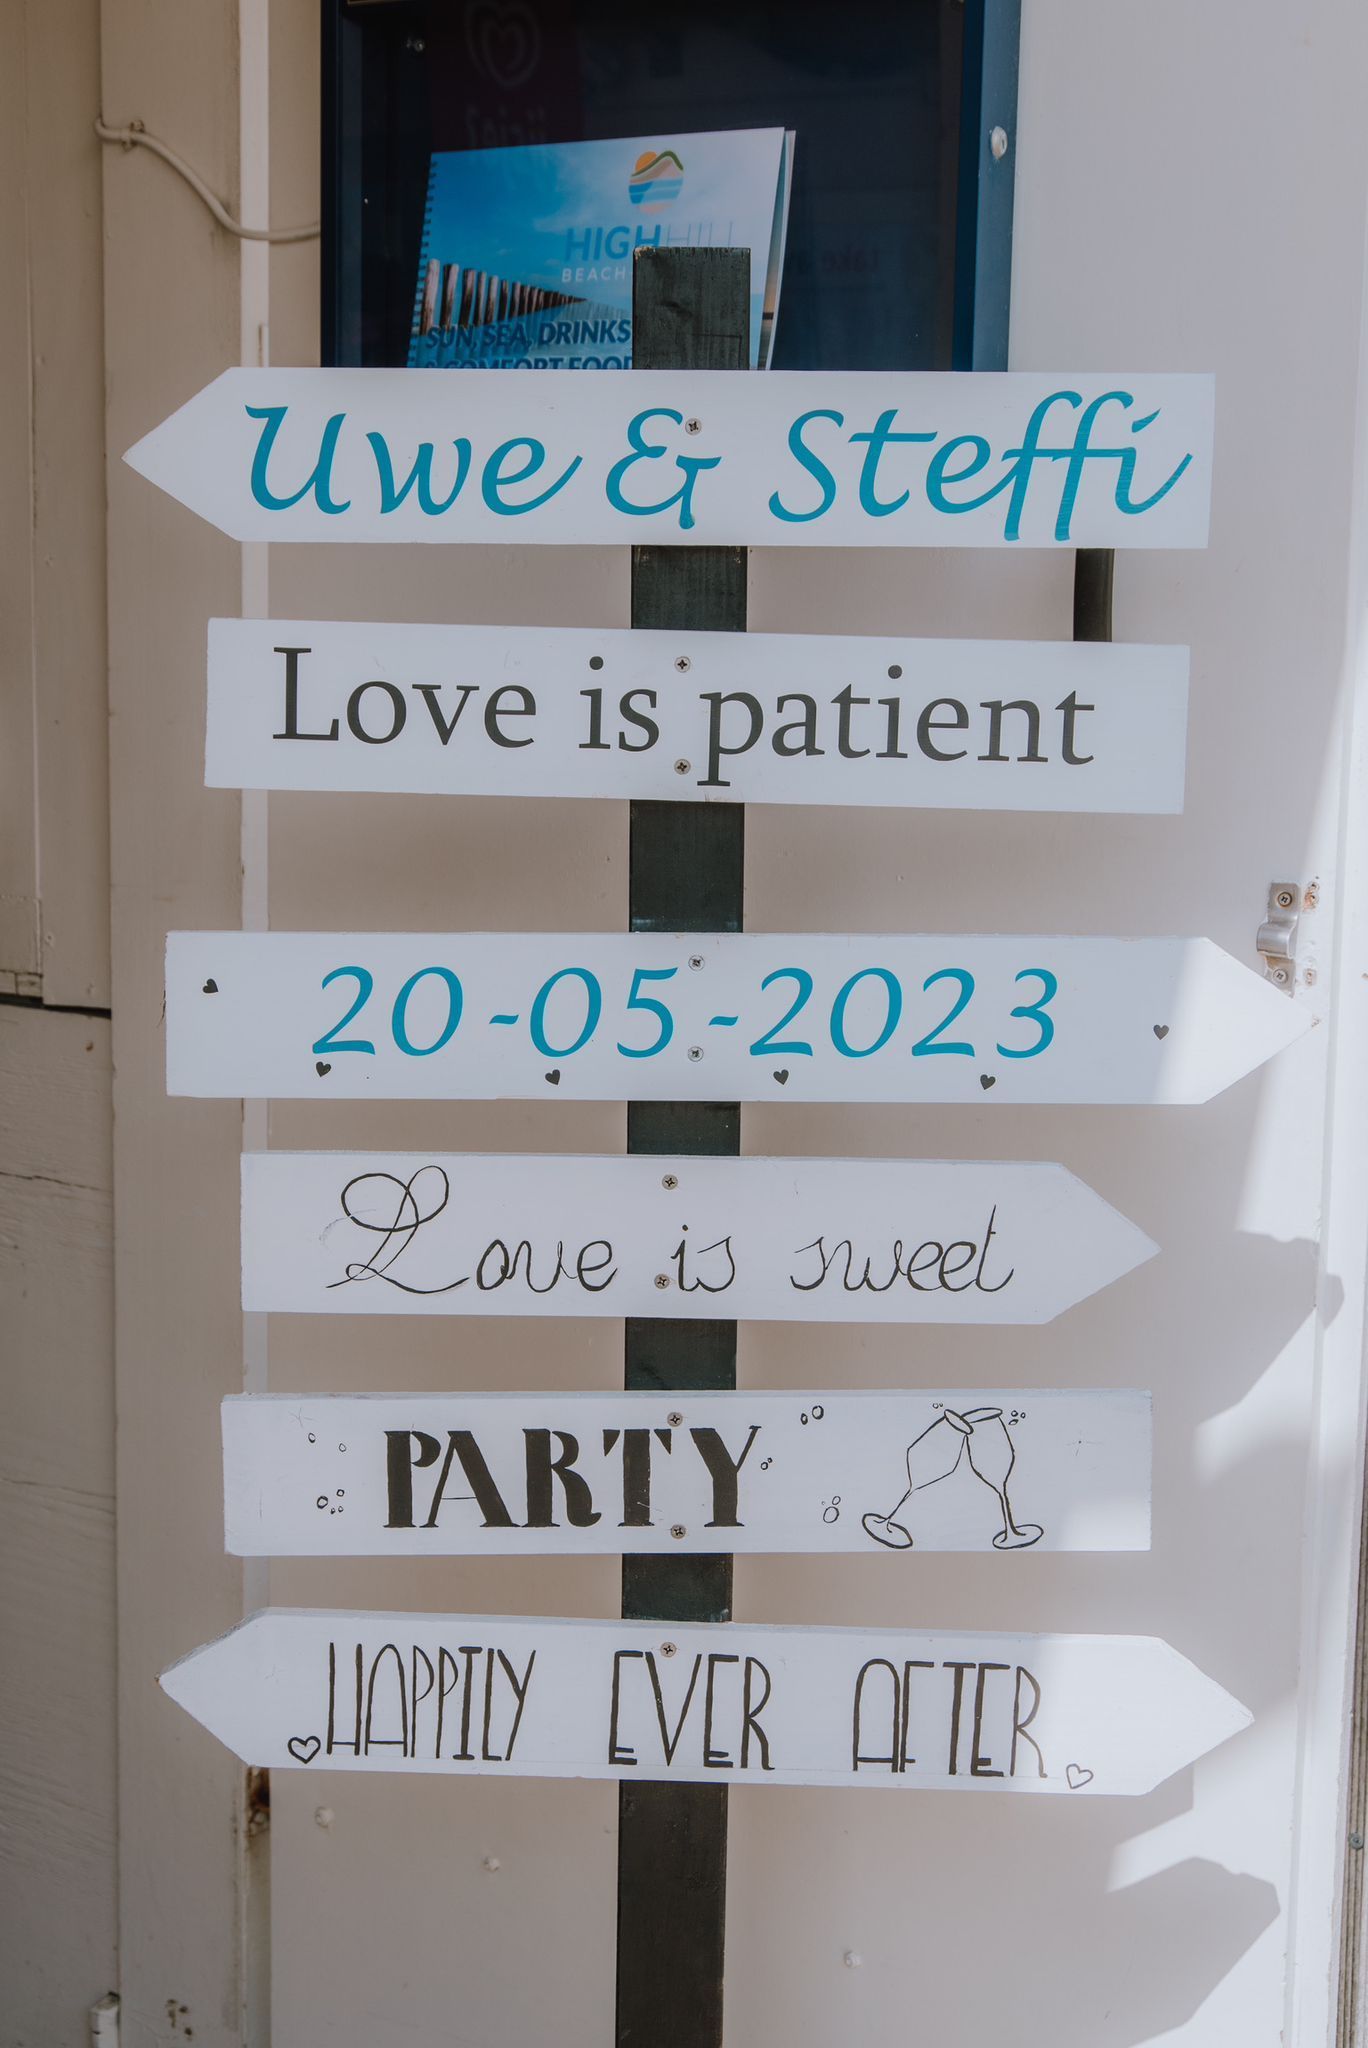 HIGH HILL
BEACH
SUN, SEA, DRINKS
& COMFORT FOOD
Uwe & Steffi
Love is patient
20-05-2023
Love is sweet
PARTY
HAPPILY EVER AFTER